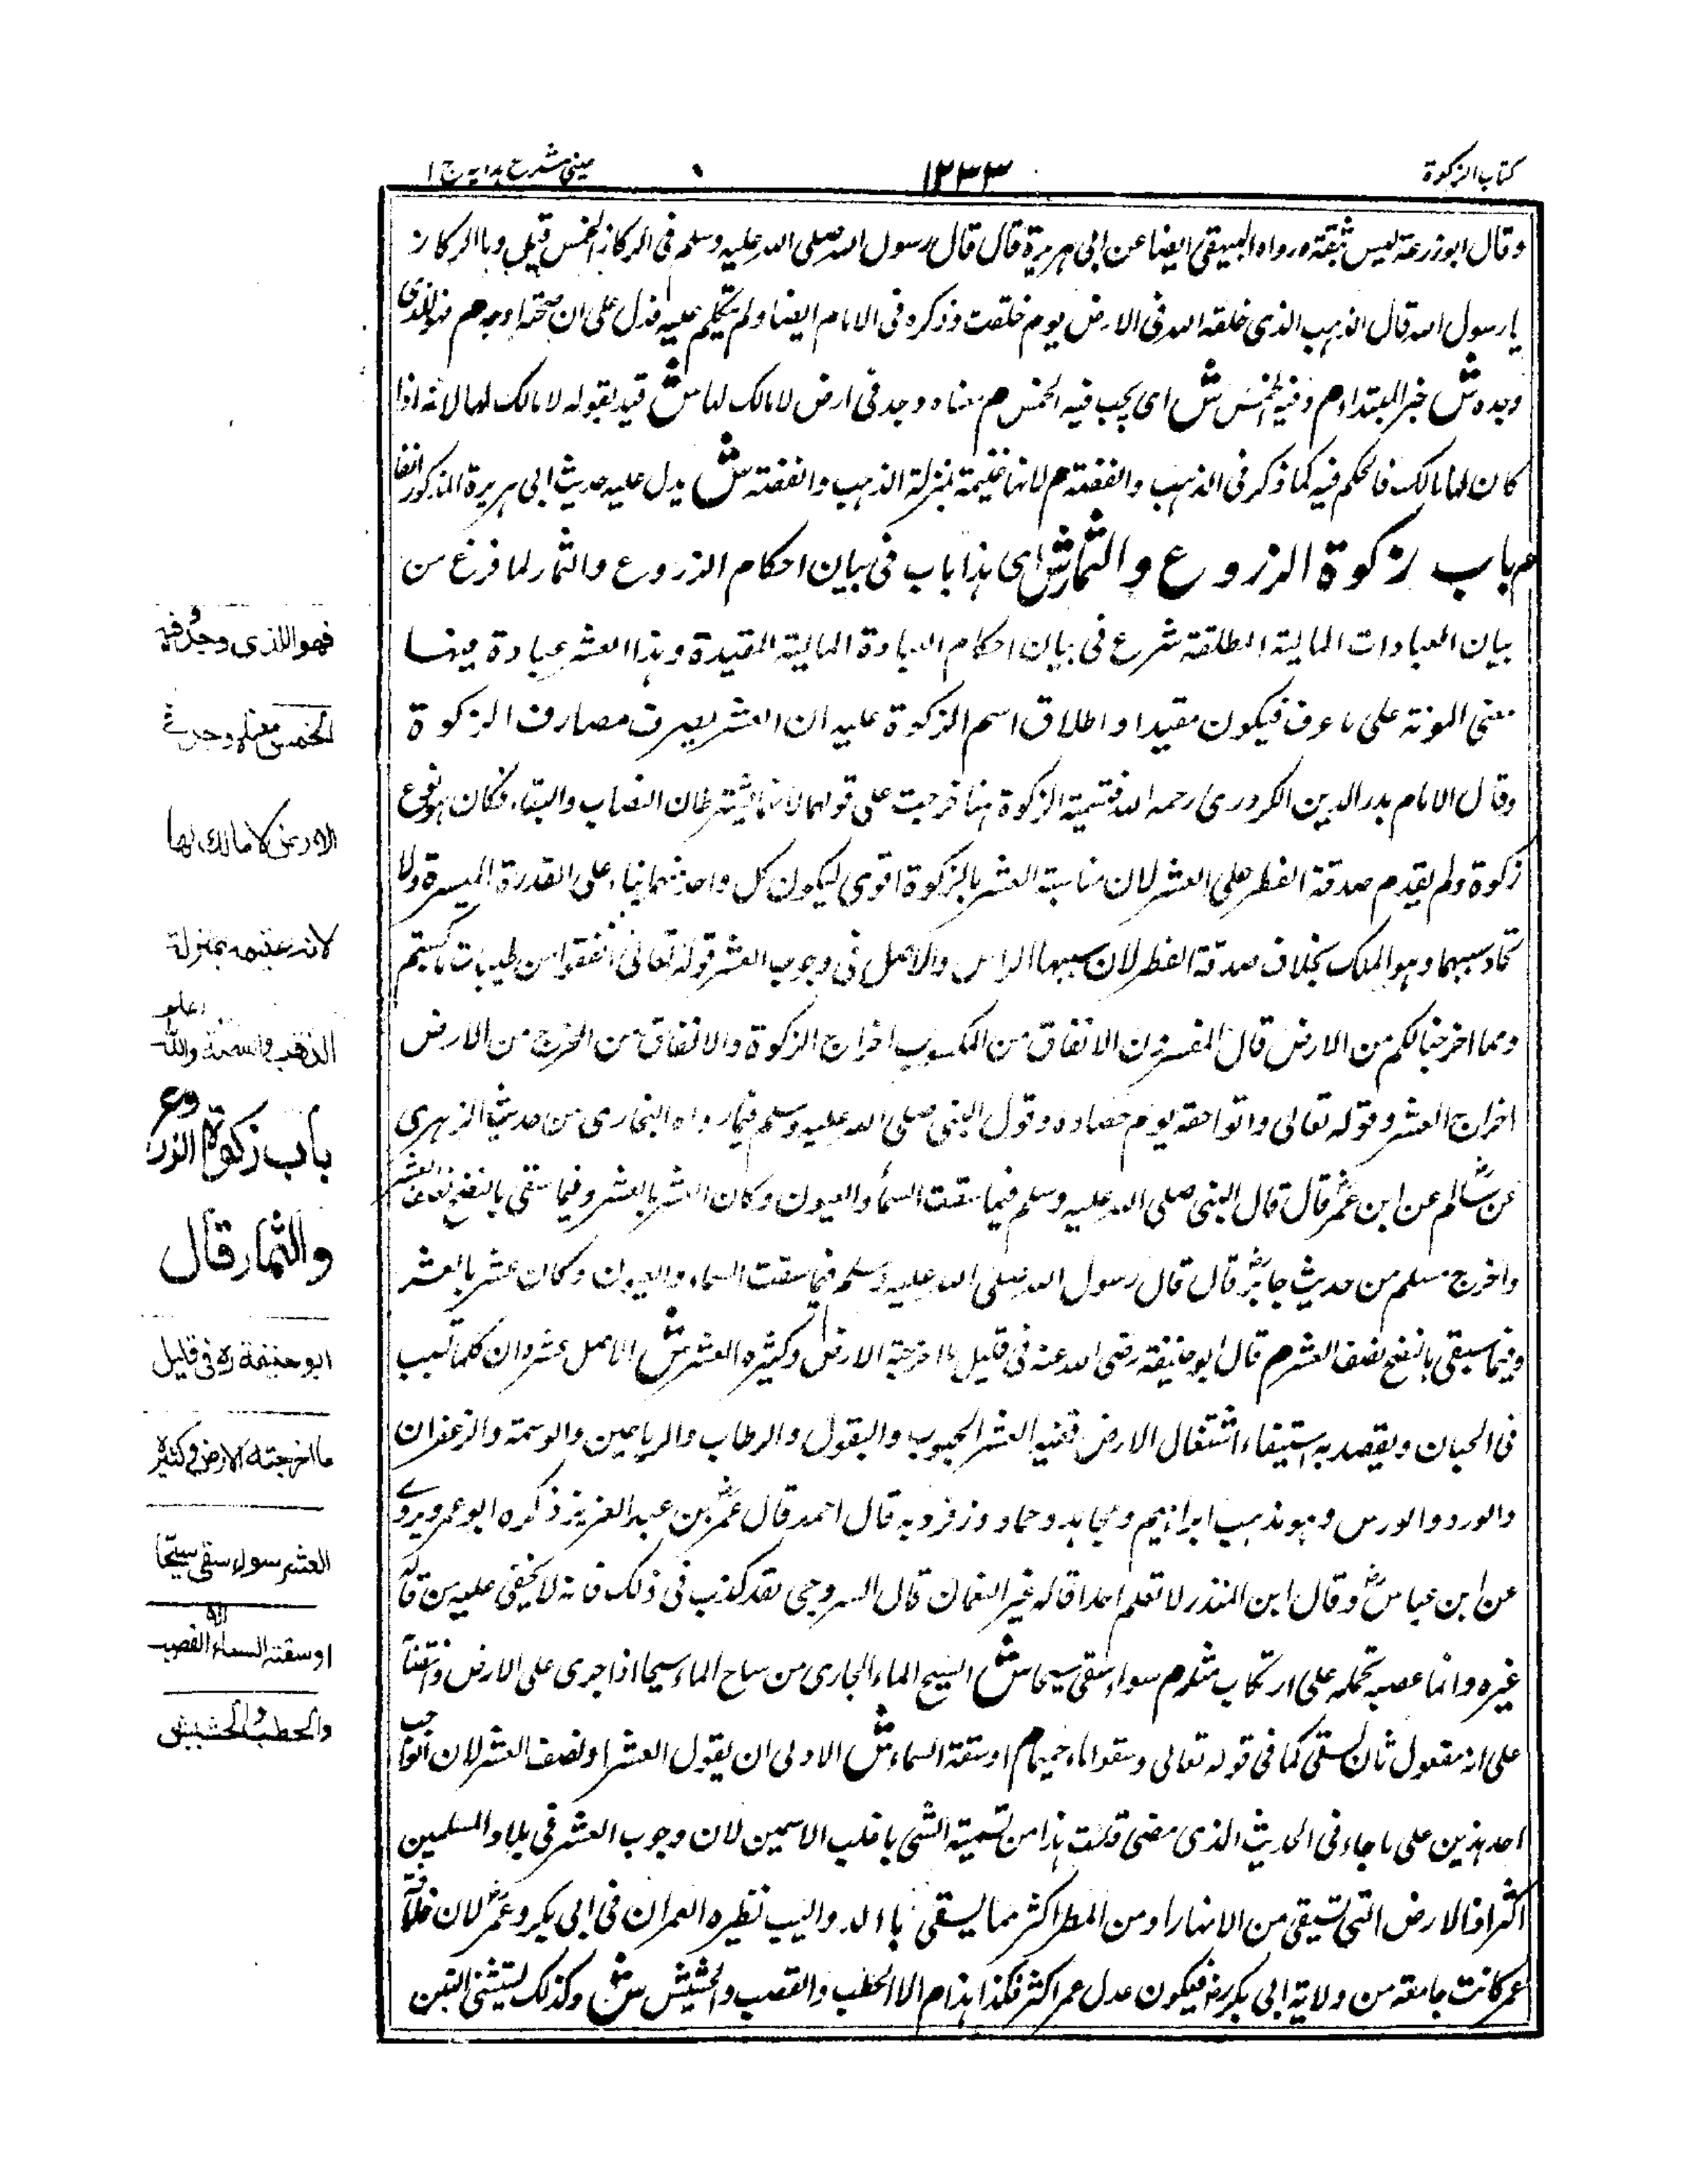 كتاب الزكوة
١٢٣٣
عيني شرح هدايه ج ١
وقال ابو زرعة ليس بثقة ورواه البيهقي ايضا عن ابي هريرة قال قال رسول الله صلى الله عليه وسلم في الركاز الخمس قيل وما الركاز
يا رسول الله قال الذهب الذي خلقه الله في الارض يوم خلقت وذكره في الامام ايضا ولم يتكلم عليه فدل على ان صحته اوجه م فهو للذي
وجده ش خبر المبتدا م وفيه الخمس ش اى يجب فيه الخمس م معناه وجد في ارض لا مالك لها ش قيد بقوله لا مالك لها لانه اذا
كان لها مالك فالحكم فيه كما ذكر في الذهب والفضة م لانها غنيمة بمنزلة الذهب والفضة ش يدل عليه حديث ابي هريرة المذكور انفا
م باب زكوة الزروع والثمار ش اى هذا باب في بيان احكام الزروع والثمار لما فرغ من
بيان العبادات المالية المطلقة شرع في بيان احكام العبادة المالية المقيدة وهذا العشر عبادة فيها
معنى المونة على ما عرف فيكون مقيدا واطلاق اسم الزكوة عليه ان العشر يصرف مصارف الزكوة
وقال الامام بدر الدين الكردري رحمه الله فتسمية الزكوة هنا خرجت على قولهما لانهما يشترطان النصاب والبقاء فكان هو نوع
زكوة ولم يقدم صدقة الفطر على العشر لان مناسبة العشر بالزكوة اقوى ليكون كل واحد منهما بناء على القدرة الميسرة ولا
تحاد سببهما وهو الملك بخلاف صدقة الفطر لان سببها الراس والاصل في وجوب العشر قوله تعالى انفقوا من طيبات ما كسبتم
ومما اخرجنا لكم من الارض قال المفسرون الانفاق من المكسوب اخراج الزكوة والانفاق من المخرج من الارض
اخراج العشر وقوله تعالى واتوا حقه يوم حصاده وقول النبي صلى الله عليه وسلم فيما رواه البخاري من حديث الزهري
عن سالم عن ابن عمر قال قال النبي صلى الله عليه وسلم فيما سقت السماء والعيون وكان العشر بالعشر وفيما سقى بالنضح نصف العشر
واخرج مسلم من حديث جابر قال قال رسول الله صلى الله عليه وسلم فيما سقت السماء والعيون وكان عشر بالعشر
وفيما سقي بالنضح نصف العشر م قال ابو حنيفة رضى الله عنه في قليل ما اخرجته الارض وكثيره العشر ش الاصل عشر وان كلما تسب
في الجبان ويقصد به استيفاء اشتغال الارض ففيه العشر الحبوب والبقول والرطاب والرياحين والوسمة والزعفران
والورد والورس وهو مذهب ابراهيم ومجاهد وحماد وزفر وبه قال احمد قال عمر بن عبد العزيز ذكره ابو عمر ويروى
عن ابن عباس وقال ابن المنذر لا نعلم احدا قاله غير النعمان قال السروجي لقد كذب في ذلك فانه لا يخفى عليه من قاله
غيره وانما عصبه تحمله على ارتكاب مثله م سواء سقى سيحا ش السيح الماء الجاري من ساح الماء سيحا اذا جرى على الارض وانتصابه
على انه مفعول ثان لسقى كما في قوله تعالى وسقوا ماء حميما م او سقته السماء ش الاولى ان يقول العشر او نصف العشر لان الواجب
احد هذين على ما جاء في الحديث الذي مضى قلت هذا من تسمية الشى باغلب الاسمين لان وجوب العشر في بلاد المسلمين
اكثر اذ الارض التي تسقى من الانهار او من المطر اكثر مما يسقى بالدواليب نظيره العمران في ابي بكر وعمر لان خلافة
عمر كانت جامعة من ولاية ابي بكر رض فيكون عدل عمر اكثر فكذا هذا م الا الحطب والقصب والحشيش ش وكذلك يستثنى التبن
فهو اللذي وجده وفيه
الخمس معناه وجد في
الارض لا مالك لها
لانه غنيمه بمنزلة
الذهب والفضة والله اعلم
باب زكوة الزروع
والثمار قال
ابو حنيفة ره في قليل
ما اخرجته الارض وكثيره
العشر سواء سقى سيحا
او سقته السماء الا القصب
والحطب والحشيش